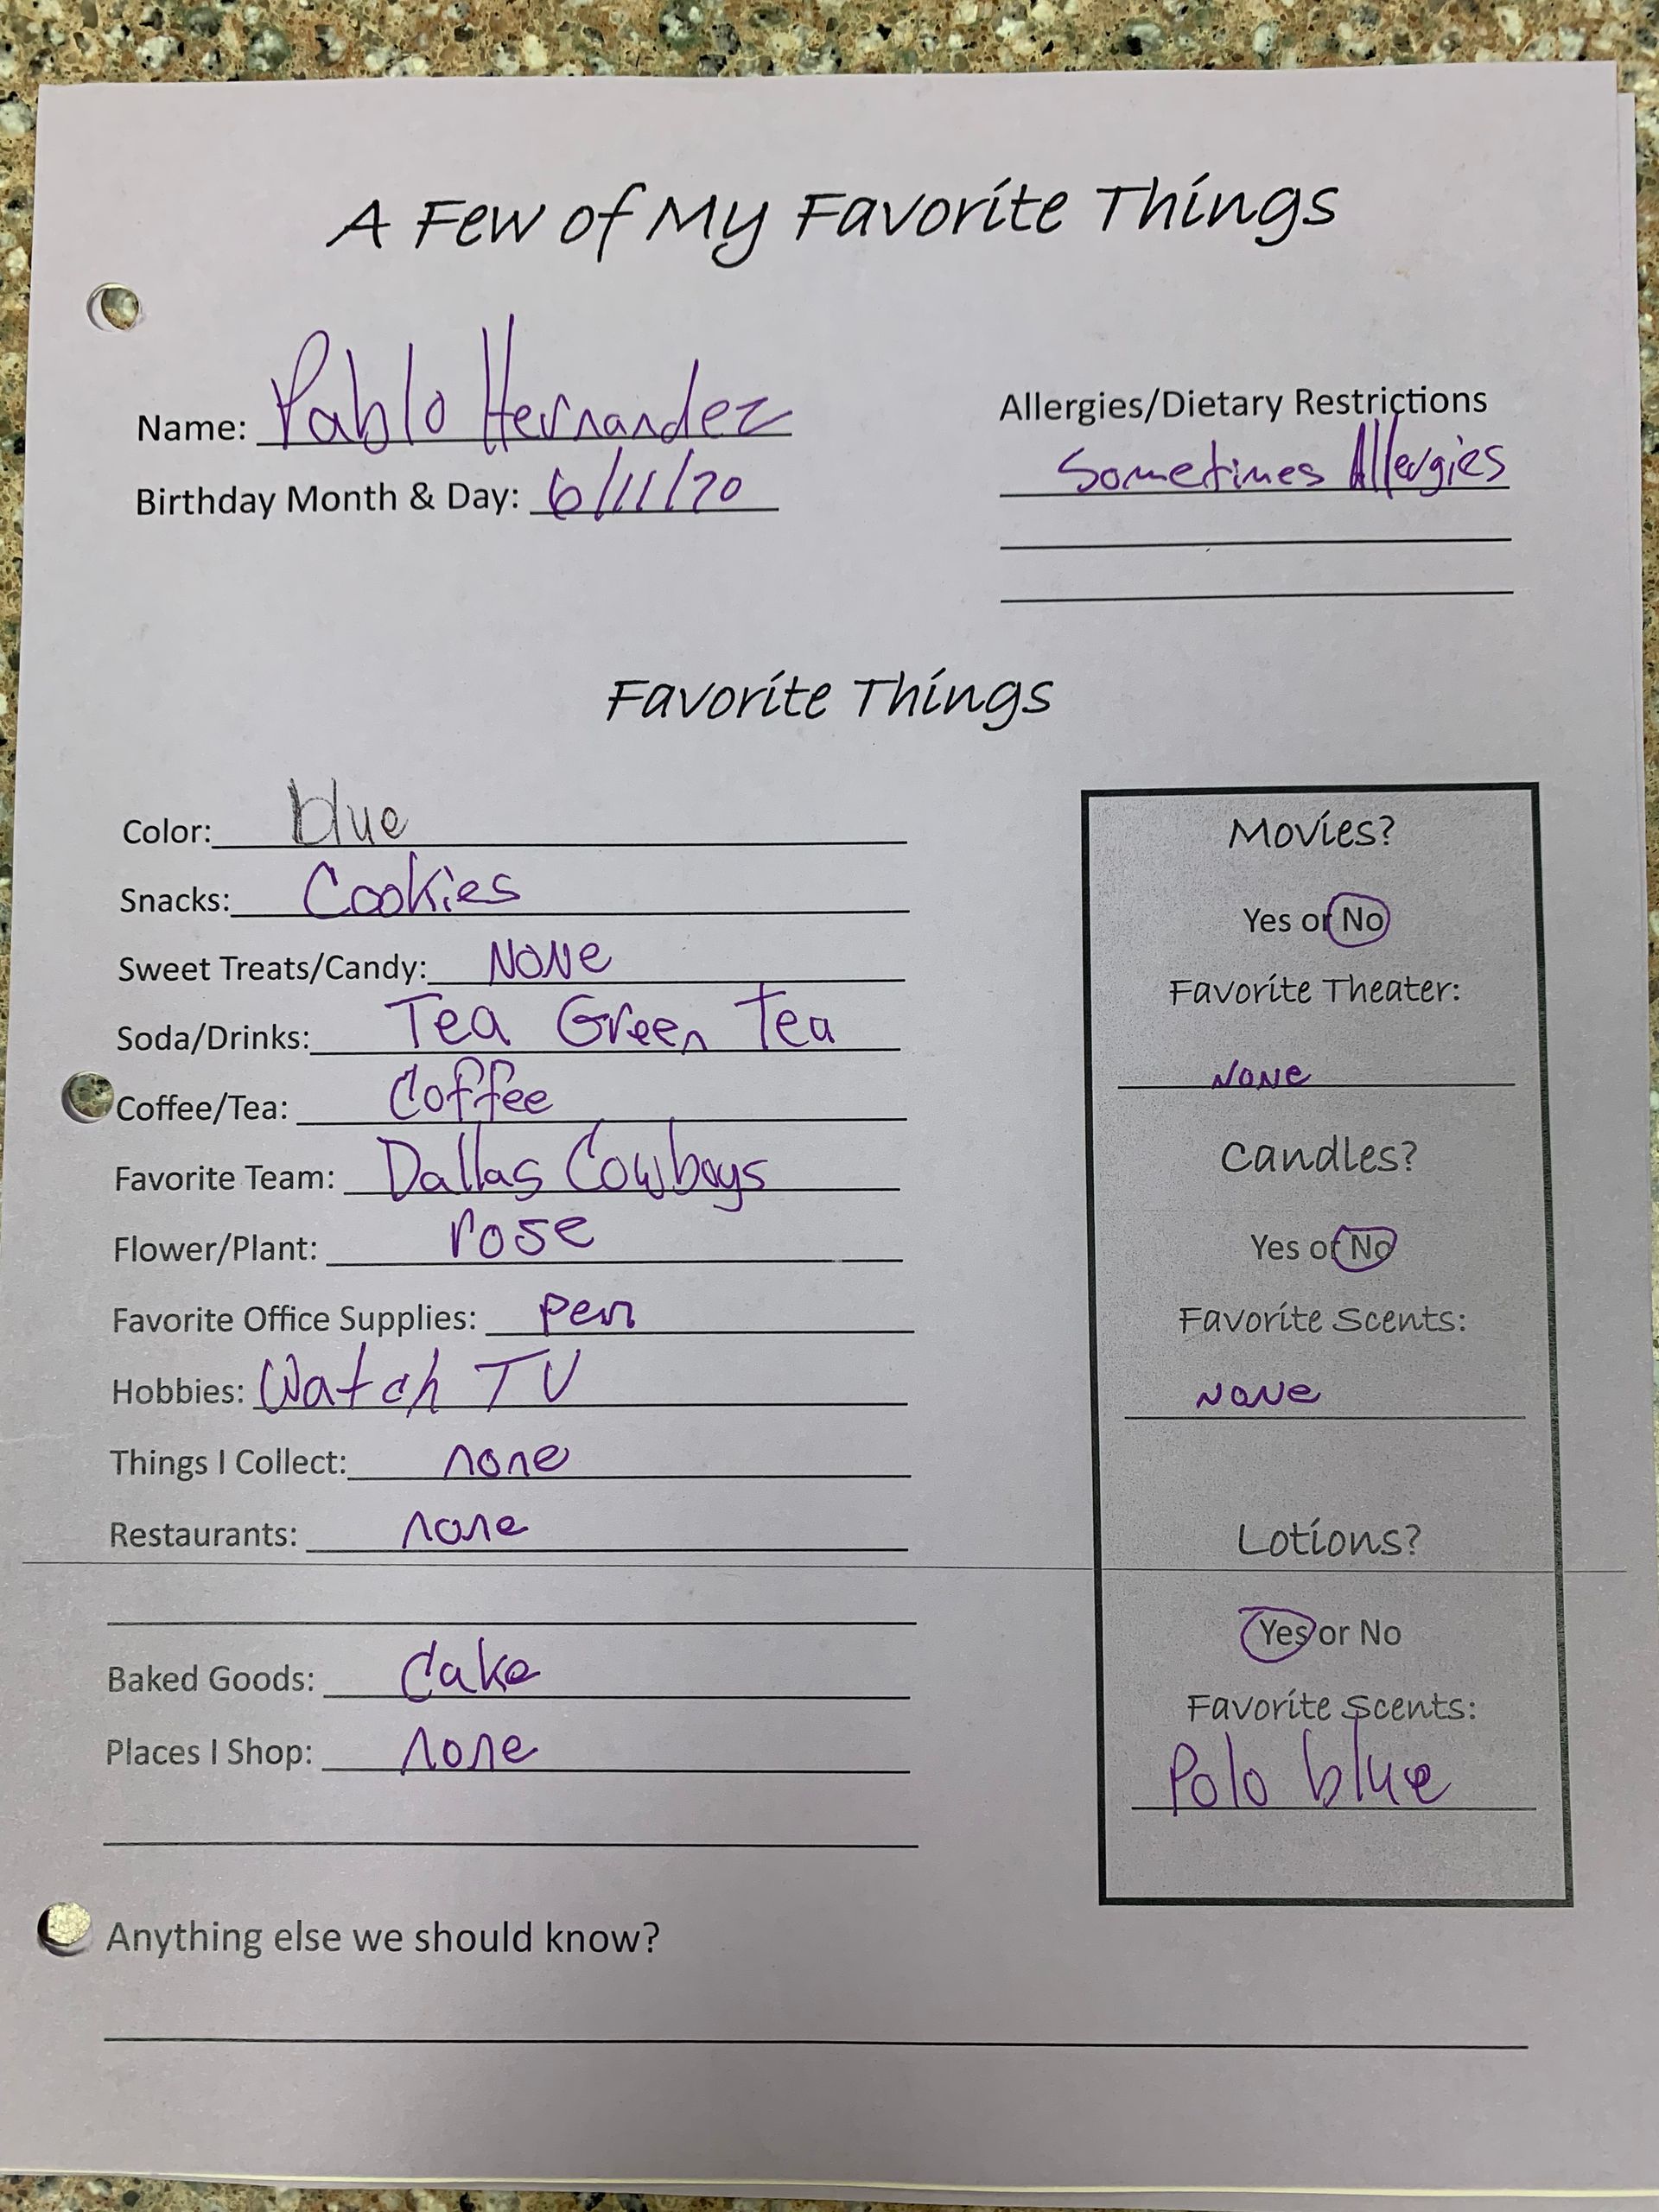 A Few of My Favorite Things
Name: Pablo Hernandez
Birthday Month & Day: 6/11/70
Allergies/Dietary Restrictions
Sometimes Allergies
Favorite Things
Color: blue
Snacks: Cookies
Sweet Treats/Candy: NONe
Soda/Drinks: Tea Green Tea
Coffee/Tea: Coffee
Favorite Team: Dallas Cowboys
Flower/Plant: rose
Favorite Office Supplies: pen
Hobbies: Watch TV
Things I Collect: none
Restaurants: none
Baked Goods: Cake
Places I Shop: none
Movies?
Yes or No
Favorite Theater:
NONe
Candles?
Yes or No
Favorite Scents:
NONe
Lotions?
Yes or No
Favorite Scents:
Polo blue
Anything else we should know?